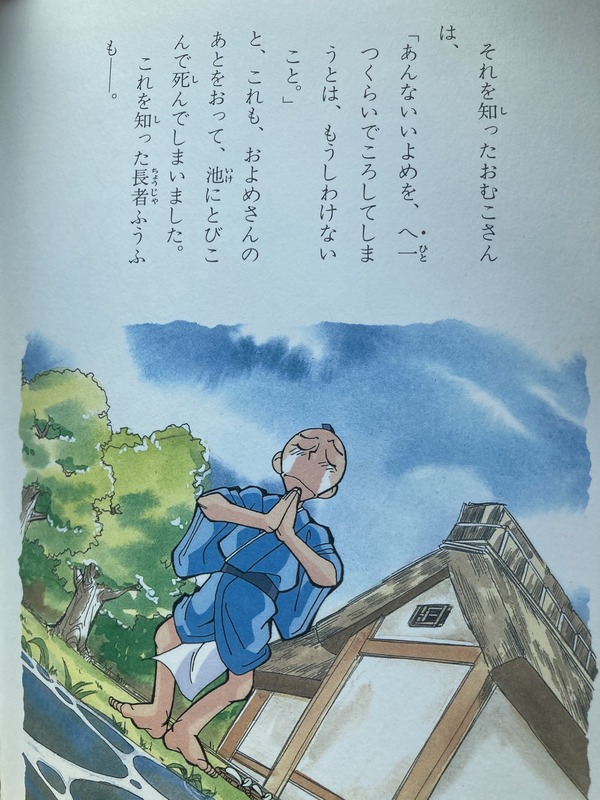 それを知ったおむこさん
は、
「あんないいよめを、へ一
つくらいでころしてしま
うとは、もうしわけない
こと。」
と、これも、およめさんの
あとをおって、池にとびこ
んで死んでしまいました。
これを知った長者ふうふ
も──。